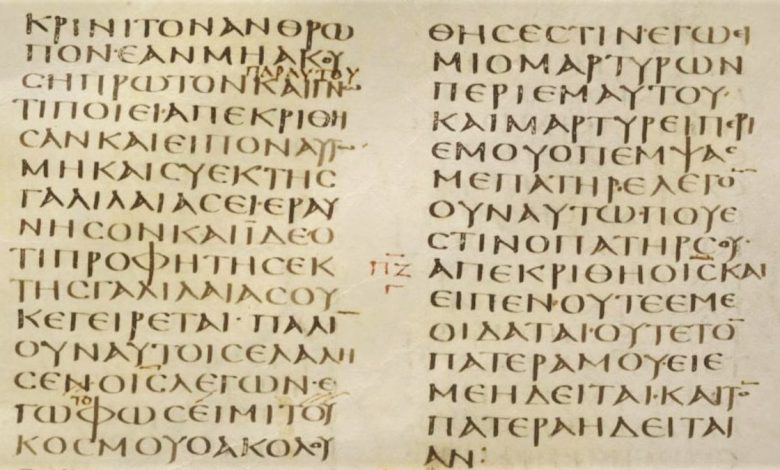 ΚΡΙΝΙΤΟΝΑΝΘΡΩ
ΠΟΝ·ΕΑΝΜΗΑΚΟΥ
ΠΑΡΑΥΤΟΥ
ϹΗΠΡΩΤΟΝΚΑΙΓΝ
ΤΙΠΟΙΕΙ·ΑΠΕΚΡΙΘΗ
ϹΑΝΚΑΙΕΙΠΟΝΑΥΤ
ΜΗΚΑΙϹΥΕΚΤΗϹ
ΓΑΛΙΛΑΙΑϹΕΙ·ΕΡΑΥ
ΝΗϹΟΝΚΑΙΪΔΕΟ
ΤΙΠΡΟΦΗΤΗϹΕΚ
ΤΗϹΓΑΛΙΛΑΙΑϹΟΥ
ΚΕΓΕΙΡΕΤΑΙ· ΠΑΛΙ̅
ΟΥΝΑΥΤΟΙϹΕΛΑΛΗ
ϹΕΝ·ΟΙ̅Ϲ̅ΛΕΓΩΝ·Ε
ΤΟ
ΓΩΦΩϹΕΙΜΙΤΟΥ
ΚΟϹΜΟΥΟΑΚΟΛΟΥ
ΘΗϹΕϹΤΙΝ·ΕΓΩΕΙ
ΜΙΟΜΑΡΤΥΡΩΝ
ΠΕΡΙΕΜΑΥΤΟΥ·
ΚΑΙΜΑΡΤΥΡΕΙΠΕΡΙ
ΕΜΟΥΟΠΕΜΨΑϹ
ΜΕΠΑΤΗΡ·ΕΛΕΓΟ̅
ΟΥΝΑΥΤΩ·ΠΟΥΕ
ϹΤΙΝΟΠΑΤΗΡϹΟΥ·
ΠΖ
Γ
ΑΠΕΚΡΙΘΗΟΙ̅Ϲ̅ΚΑΙ
ΕΙΠΕΝ·ΟΥΤΕΕΜΕ
ΟΙΔΑΤΑΙ·ΟΥΤΕΤΟ̅
ΠΑΤΕΡΑΜΟΥ·ΕΙΕ
ΜΕΗΔΕΙΤΑΙ·ΚΑΙΤΟ̅
ΠΑΤΕΡΑΗΔΕΙΤΑΙ
ΑΝ: